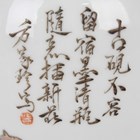 古硯不容
留宿墨清瓶
隨意插新花
方家珍寫